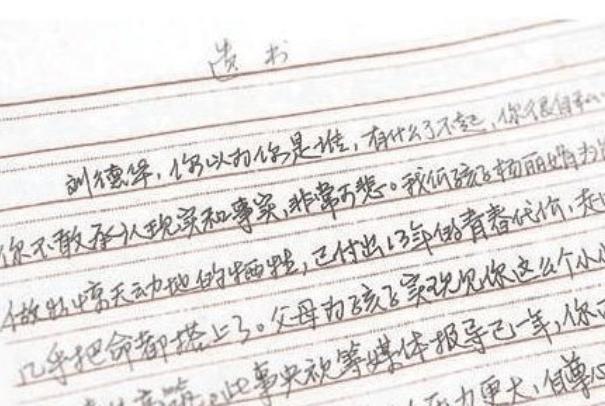 遗书
刘德华,你以为你是谁,有什么了不起,你很自私
你不敢承认现实和事实,非常可悲。我的孩子杨丽娟为
做出惊天动地的牺牲,已付出13年的青春代价,走
几乎把命都搭上了。父母为孩子实现见你这么个小
此事央视等媒体报导已一年,你
力更大,自尊心